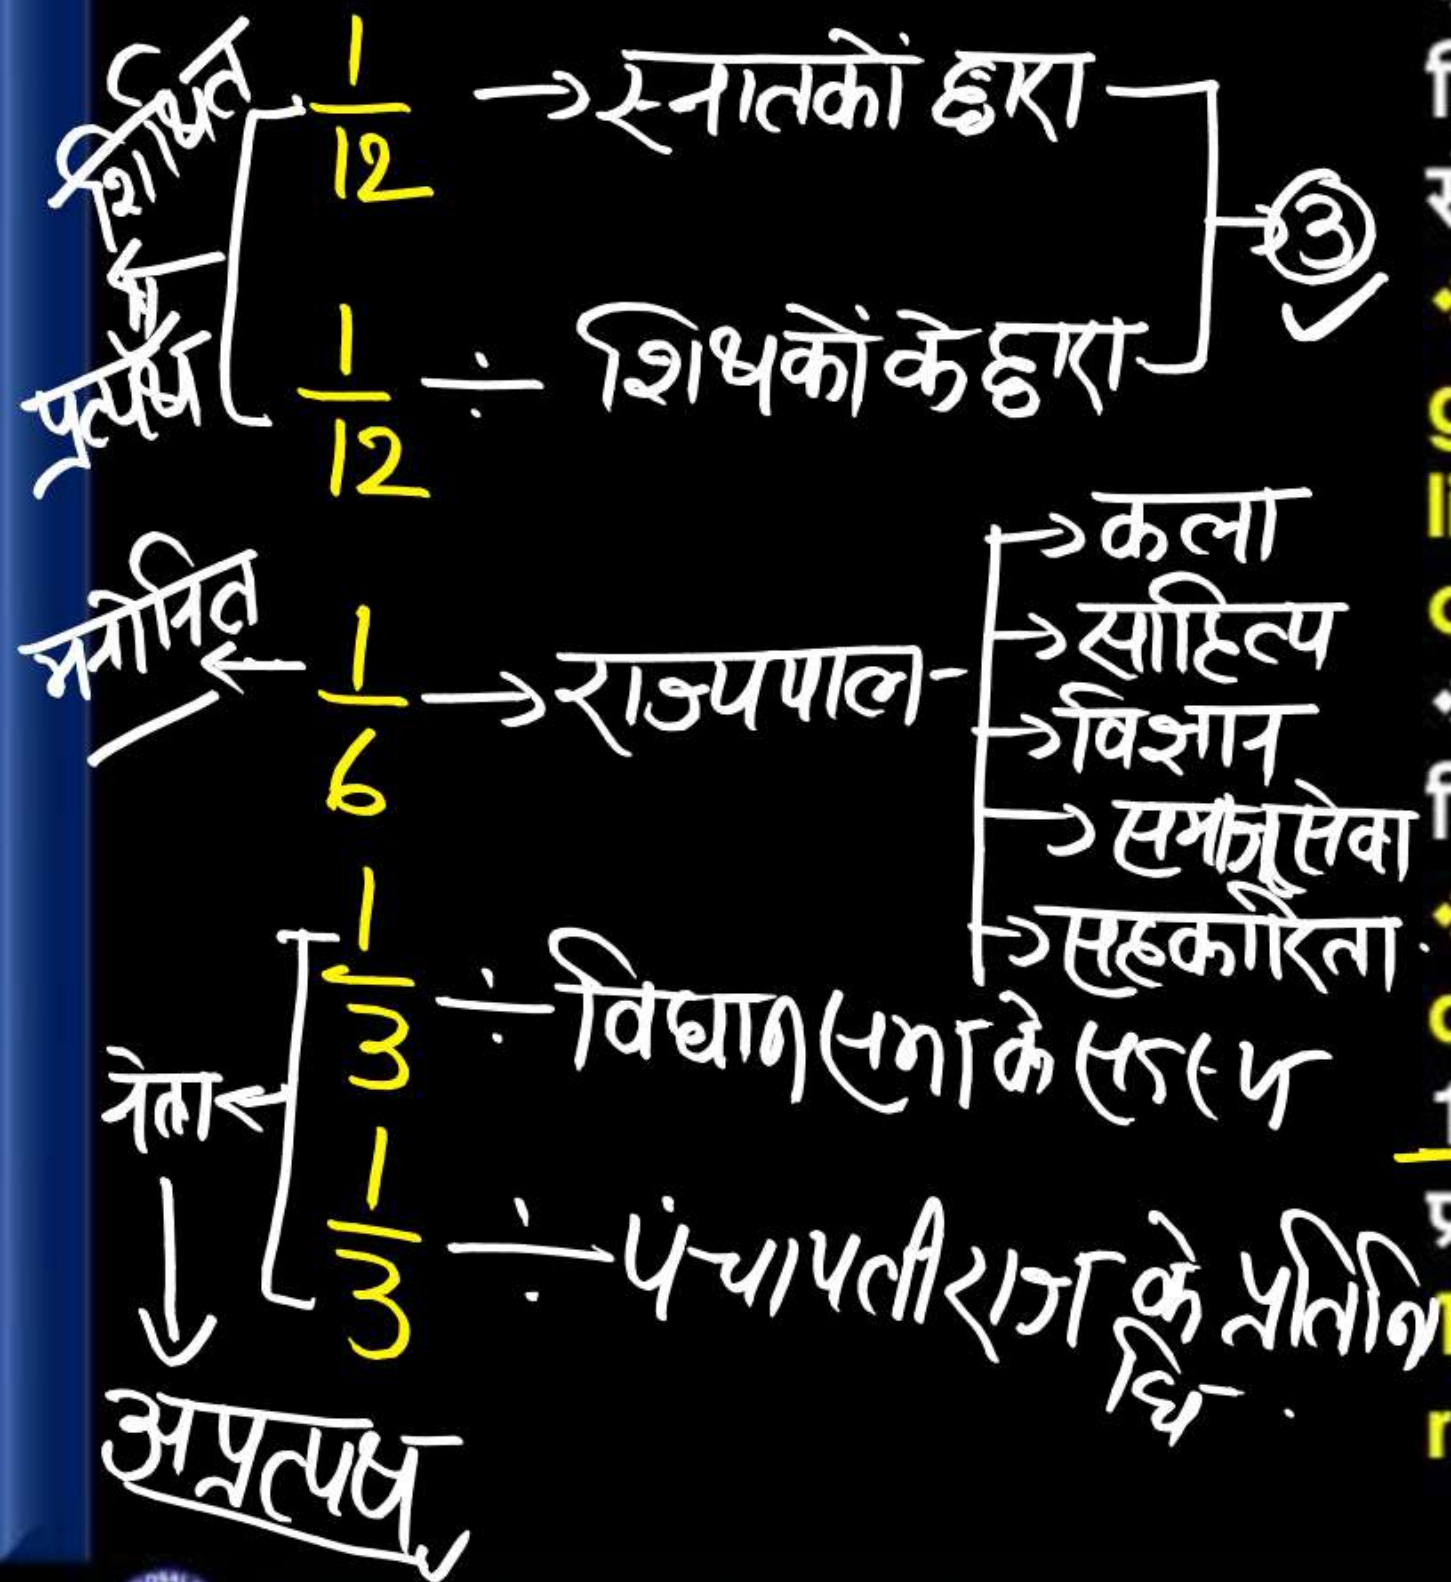 शिक्षित
में
प्रत्यक्ष
1/12 → स्नातकों द्वारा
3
1/12 ÷ शिक्षकों के द्वारा
मनोनित ← 1/6 → राज्यपाल -
→ कला
→ साहित्य
→ विज्ञान
→ समाज सेवा
→ सहकारिता
1/3 ÷ विधान सभा के सदस्य
नेता ←
1/3 ÷ पंचायती राज के प्रतिनि
धि
अप्रत्यक्ष